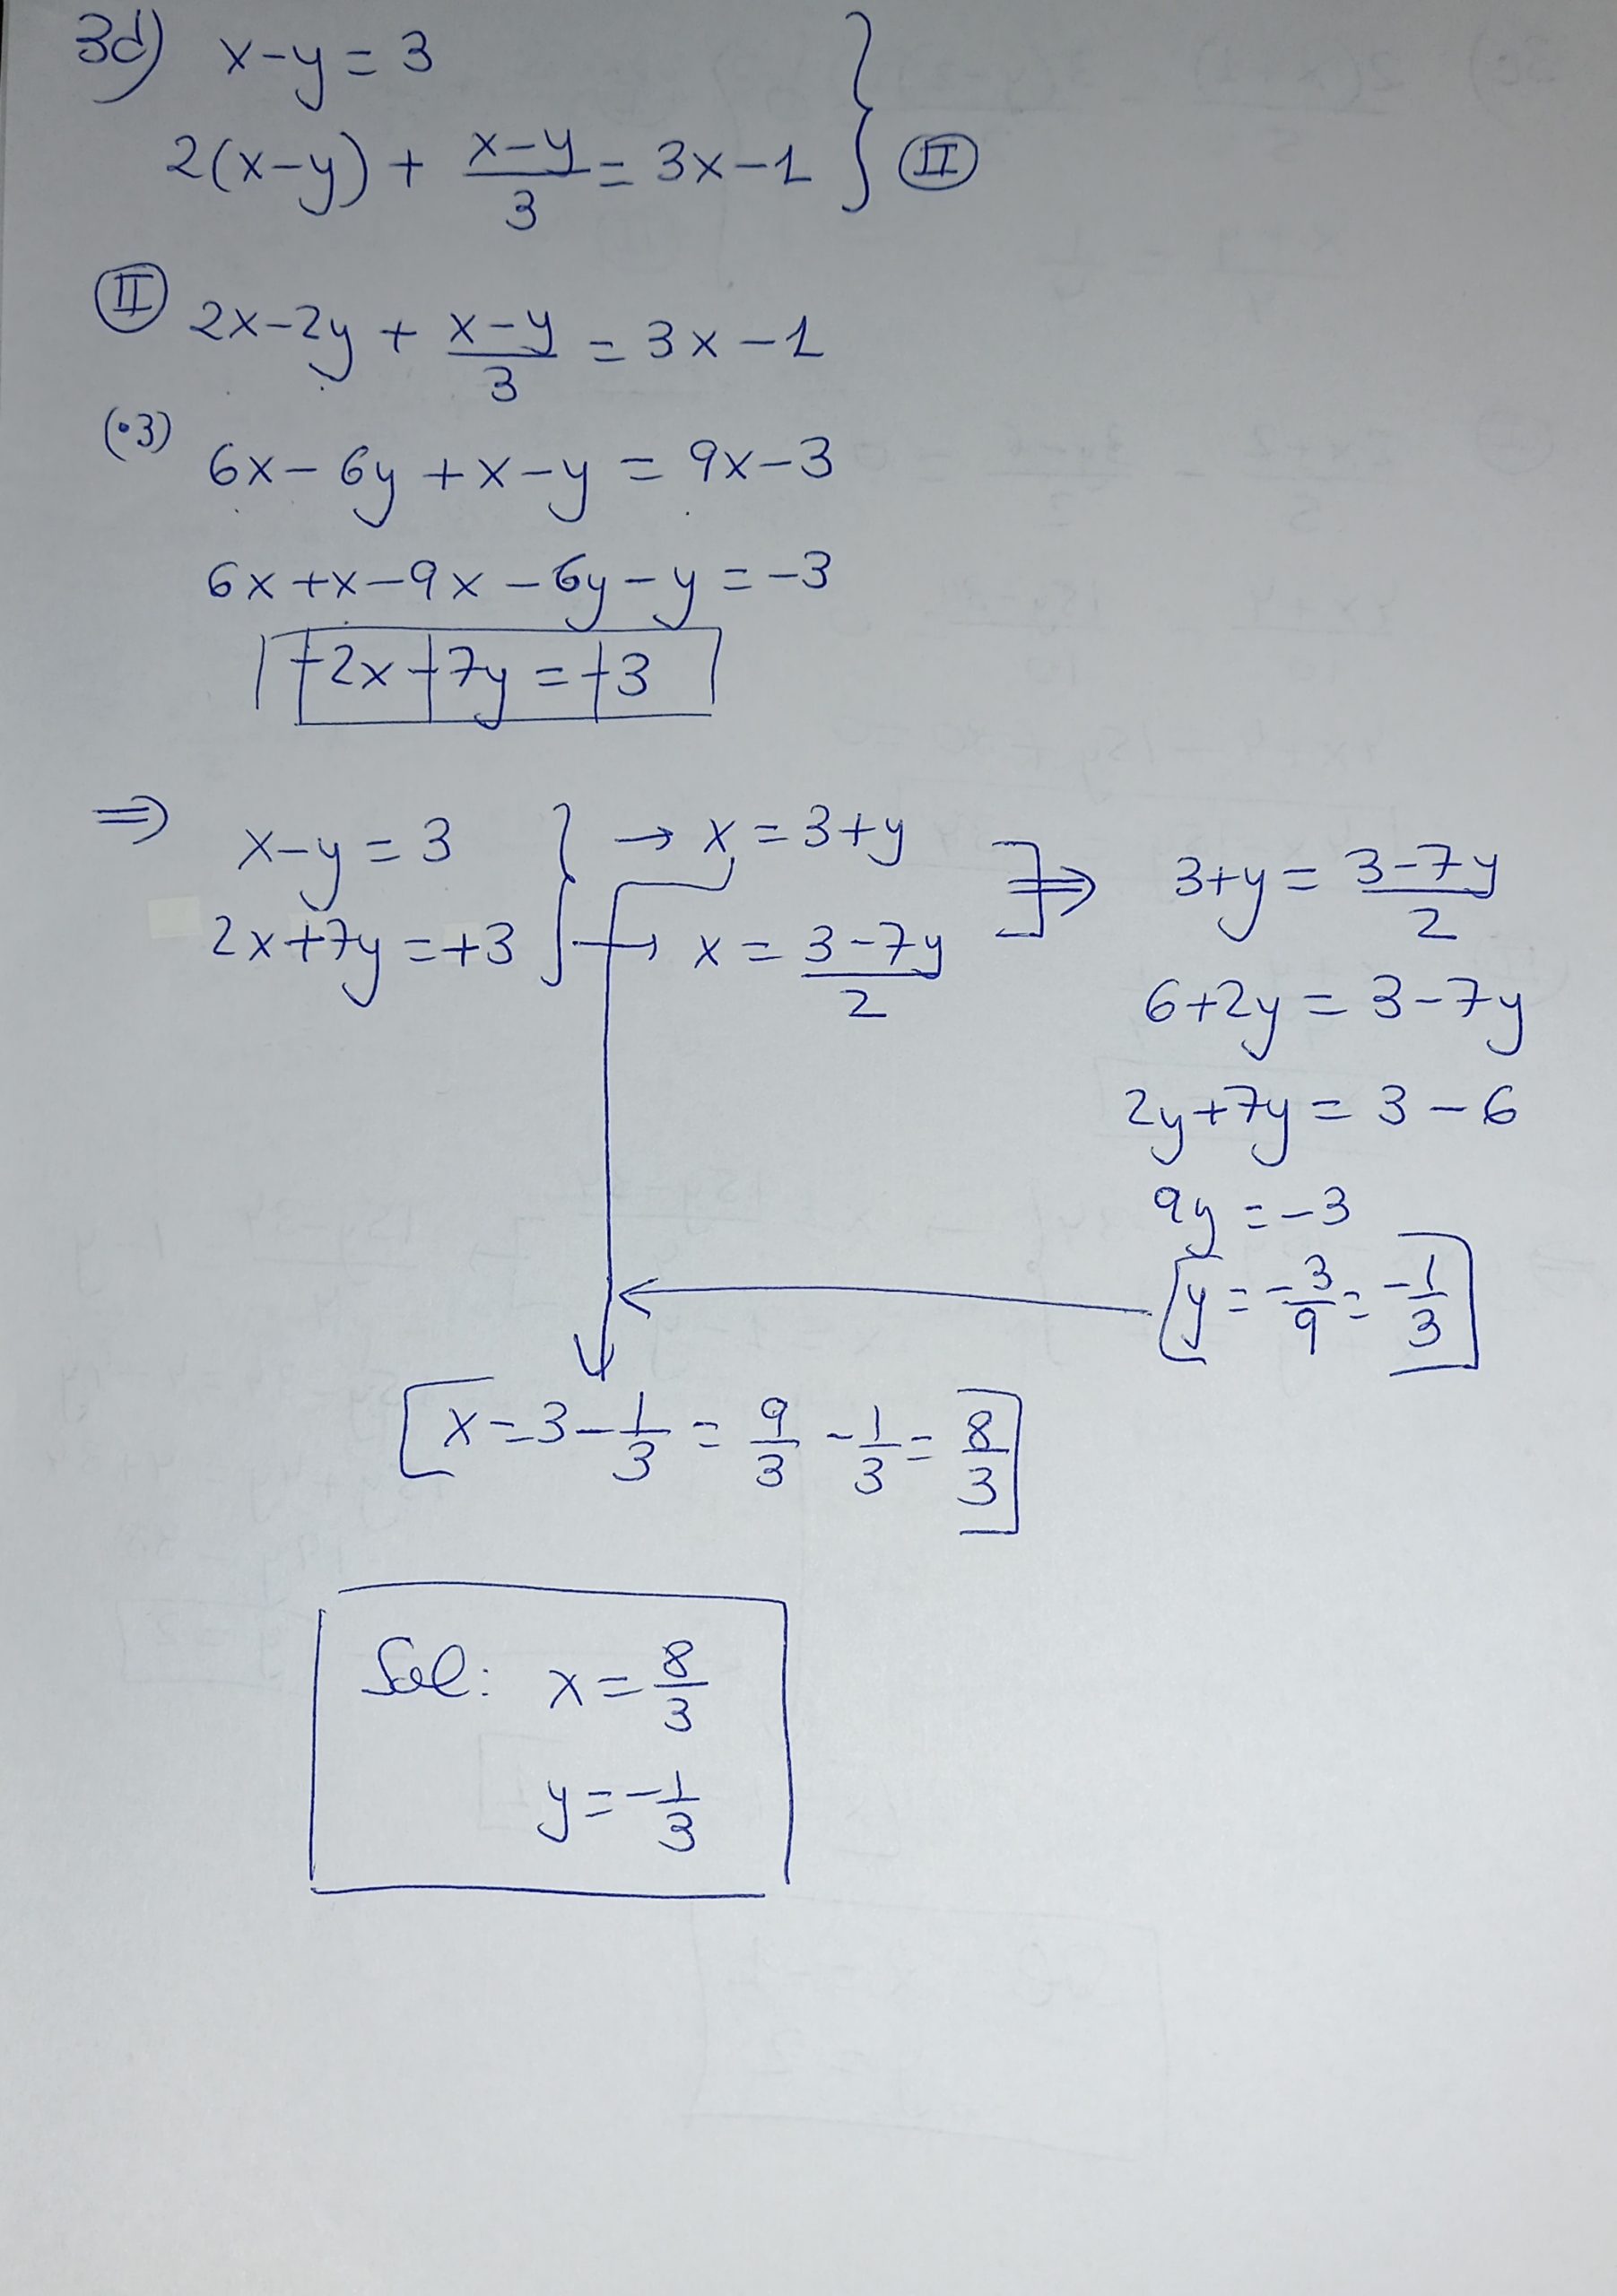 3d) x-y = 3
2(x-y) + \frac{x-y}{3} = 3x-1 } II
II 2x-2y + \frac{x-y}{3} = 3x-1
(·3)
6x-6y+x-y = 9x-3
6x+x-9x-6y-y = -3
+2x+7y = +3
⇒ x-y = 3 } → x = 3+y
2x+7y = +3 → x = \frac{3-7y}{2}
] ⇒ 3+y = \frac{3-7y}{2}
6+2y = 3-7y
2y+7y = 3-6
9y = -3
[y = -\frac{3}{9} = -\frac{1}{3}]
[x = 3-\frac{1}{3} = \frac{9}{3} - \frac{1}{3} = \frac{8}{3}]
Sol: x = \frac{8}{3}
y = -\frac{1}{3}